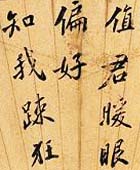 值君暖眼
偏好
知我踈狂